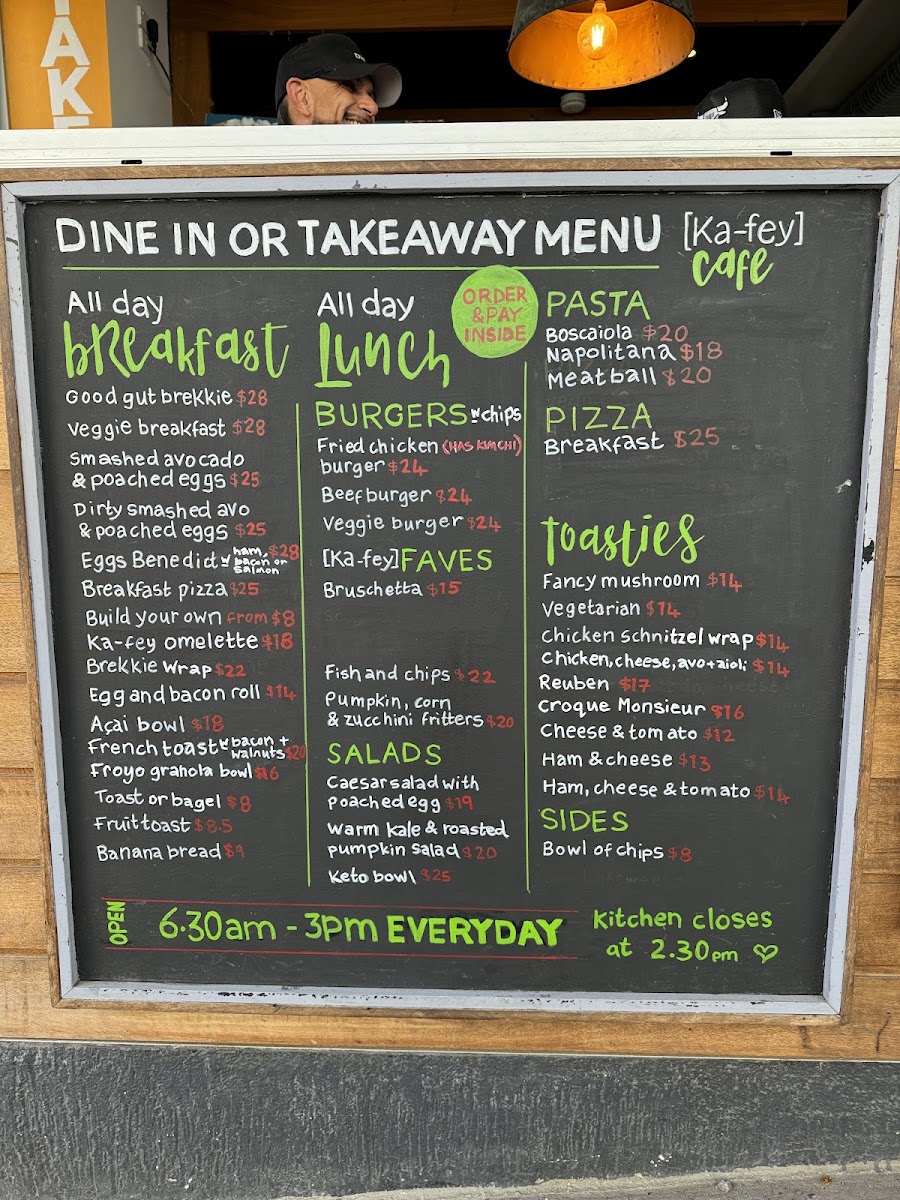 TAKE
DINE IN OR TAKEAWAY MENU
[Ka-fey]
cafe
All day
breakfast
Good gut brekkie $28
Veggie breakfast $28
Smashed avocado
& poached eggs $25
Dirty smashed avo
& poached eggs $25
Eggs Benedict w ham, $28
bacon or
salmon
Breakfast pizza $25
Build your own from $8
Ka-fey omelette $18
Brekkie wrap $22
Egg and bacon roll $14
Açai bowl $18
French toast w bacon +
walnuts $20
Froyo granola bowl $16
Toast or bagel $8
Fruit toast $8.5
Banana bread $9
All day
Lunch
ORDER
& PAY
INSIDE
BURGERS w chips
Fried chicken (HAS KIMCHI)
burger $24
Beef burger $24
Veggie burger $24
[Ka-fey] FAVES
Bruschetta $15
Fish and chips $22
Pumpkin, corn
& zucchini fritters $20
SALADS
Caesar salad with
poached egg $19
Warm kale & roasted
pumpkin salad $20
Keto bowl $25
PASTA
Boscaiola $20
Napolitana $18
Meatball $20
PIZZA
Breakfast $25
Toasties
Fancy mushroom $14
Vegetarian $14
Chicken schnitzel wrap $14
Chicken, cheese, avo + aioli $14
Reuben $17
Croque Monsieur $16
Cheese & tomato $12
Ham & cheese $13
Ham, cheese & tomato $14
SIDES
Bowl of chips $8
OPEN
6.30am - 3pm EVERYDAY
Kitchen closes
at 2.30pm